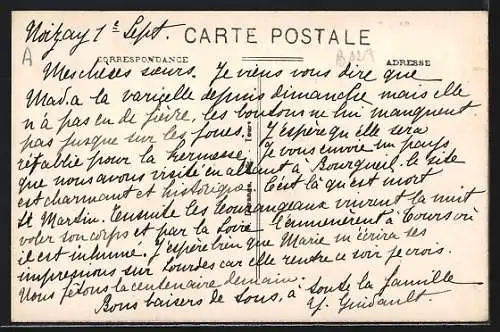 Noizay 1e Sept.
CARTE POSTALE
CORRESPONDANCE
ADRESSE
A
Mes chères sœurs. Je viens vous dire que
Mad.a la varicelle depuis dimanche mais elle
n'a pas eu de fièvre, les boutons ne lui manquent
pas jusque sur les joues. J'espère qu'elle sera
rétablie pour la kermesse. Je vous envoie un pays
que nous avons visité en allant à Bourgueil, le site
est charmant et historique. C'est là qu'est mort
St Martin. Ensuite les Tourangeaux vinrent la nuit
voler son corps et par la Loire l'emmenèrent à Tours où
il est inhumé. J'espère bien que Marie m'écrira ses
impressions sur Lourdes car elle rentre ce soir je crois.
Nous fêtons la centenaire demain.
Bons baisers de tous, à toute la famille
Y. Guidault